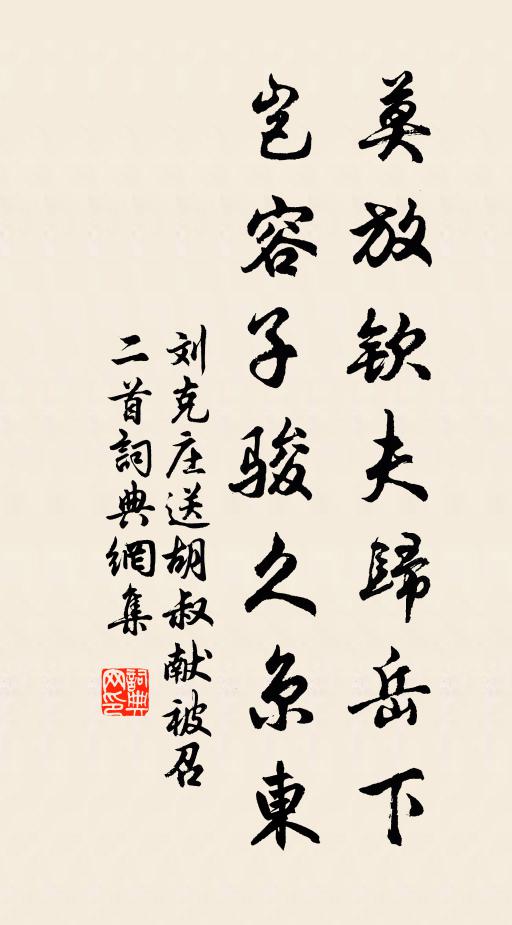 莫放欽夫歸岳下
岂容子駿久京東
刘克庄送胡叔献被召
二首詞典網集
詞典網印